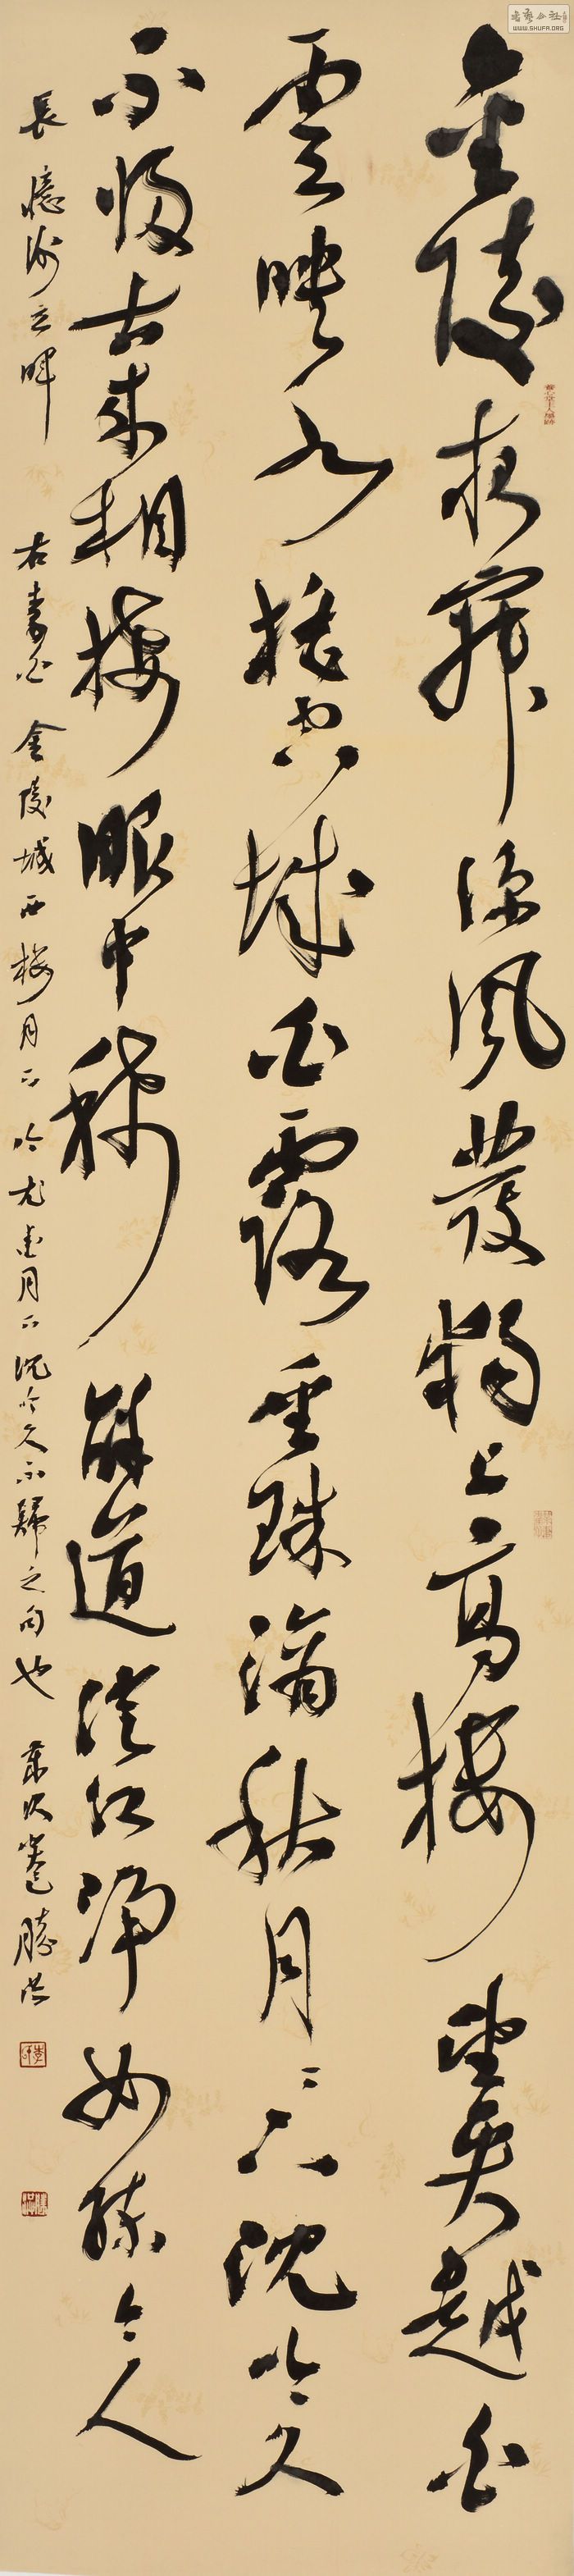 金陵夜寂涼風發獨上高樓望吳越白
雲映水搖空城白露垂珠滴秋月〻下沈吟久
不歸古來相接眼中稀解道澄江淨如練令人
長憶謝玄暉 右李白金陵城西樓月下吟尤愛月下沈吟久不歸之句也 勝洪
WWW.SHUFA.ORG